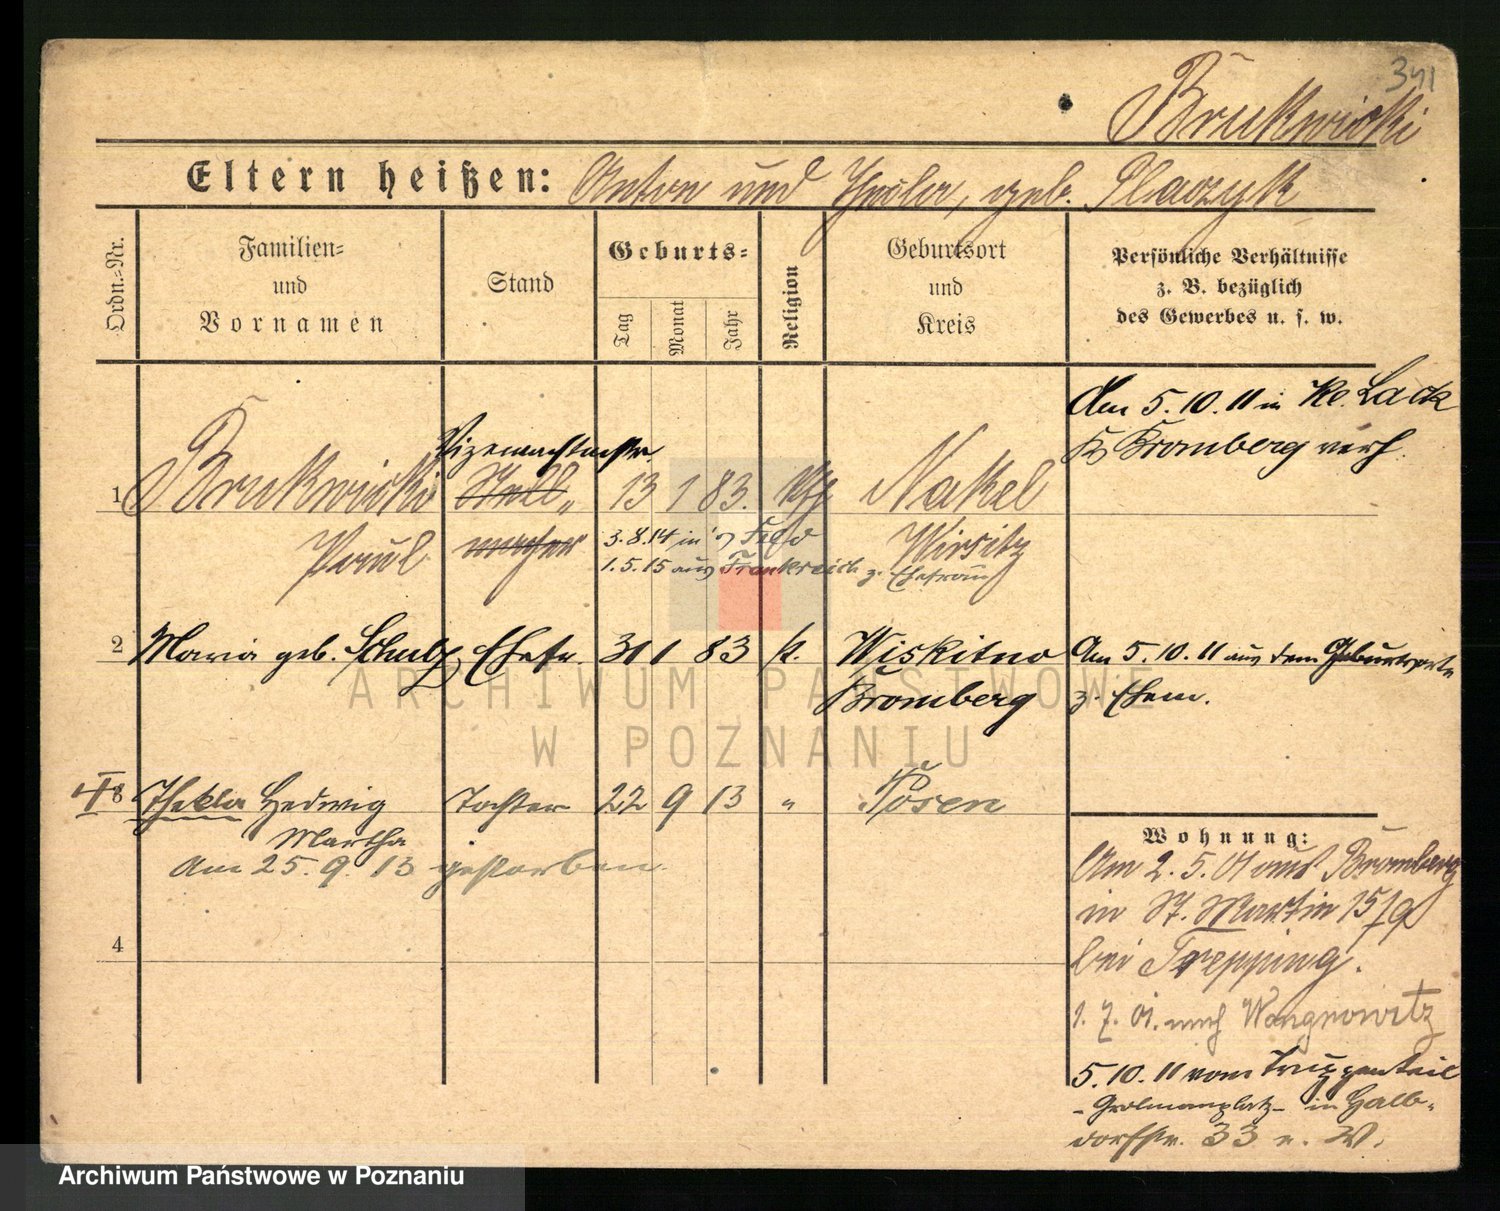 341
Brukwicki
Eltern heißen: Anton und Thekla, geb. Placzyk
Ordn.-Nr.
Familien-
und
Vornamen
Stand
Geburts-
Tag
Monat
Jahr
Religion
Geburtsort
und
Kreis
Persönliche Verhältnisse
z. B. bezüglich
des Gewerbes u. s. w.
Am 5.10.11 in Kl. Lack
K. Bromberg verh.
Vizewachtmstr.
1 Brukwicki Stell- 13 1 83. kth Nakel
Paul macher Wirsitz
3.8.14 in's Feld
1.5.15 aus Frankreich z. Ehefrau
2 Maria geb. Schulz Ehefr. 31 1 83 k. Wiskitno
Bromberg
Am 5.10.11 aus dem Geburtsorte
z. Ehem.
3 Thekla Hedwig Tochter 22 9 13 " Posen
Martha
Am 25.9.13 gestorben.
4
Wohnung:
Am 2.5.01 aus Bromberg
in St. Martin 15/9
bei Trepping.
1.7.01. nach Wongrowitz
5.10.11 vom Truppenteil
- Grolmanplatz - in Halb-
dorfstr. 33 v. W.
ARCHIWUM PAŃSTWOWE
W POZNANIU
Archiwum Państwowe w Poznaniu